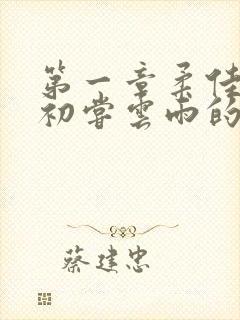 第一章柔佳
初尝云雨的
蔡建忠